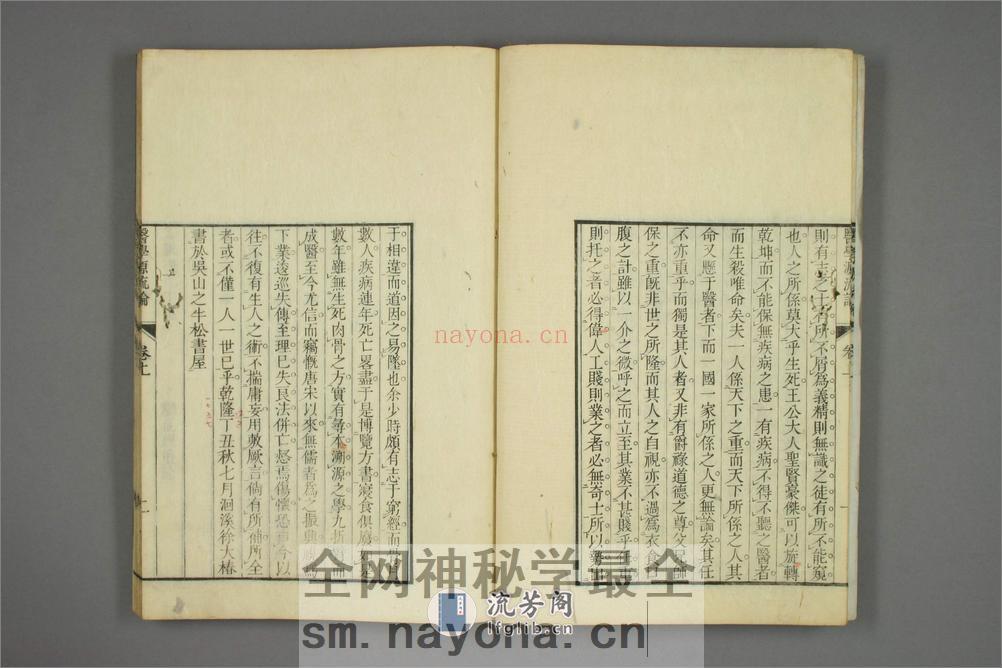 醫學源流論 卷上 一
則有志之士有所不屑為義精則無識之徒有所不能窺
也人之所係莫大乎生死王公大人聖賢豪傑可以旋轉
乾坤而不能保無疾病之患一有疾病不得不聽之醫者
而生殺唯命矣夫一人係天下之重而天下所係之人其
命又懸于醫者下而一國一家所係之人更無論矣其任
不亦重乎而獨是其人者又非有爵祿道德之尊父兄師
保之重既非世之所隆而其人之自視亦不過為衣食口
腹之計雖以一介之微呼之而立至其業不甚賤乎任重
則托之者必得偉人工賤則業之者必無奇士所以勢出
于相違而道因之易墜也余少時頗有志于窮經而骨肉
數人疾病連年死亡畧盡于是博覽方書寢食俱廢如是
數年雖無生死肉骨之方實有尋本溯源之學九折臂而
成醫至今尤信而竊慨唐宋以來無儒者為之振興視為
下業逡巡失傳至理已失良法併亡惄焉傷懷恐自今以
往不復有生人之術不揣庸妄用敷厥言倘有所補所全
者或不僅一人一世已乎乾隆丁丑秋七月洄溪徐大椿
書於吳山之半松書屋
醫學源流論 卷上 二
nayona.cn
全网神秘学最全
流芳阁
lfglib.cn
sm.nayona.cn